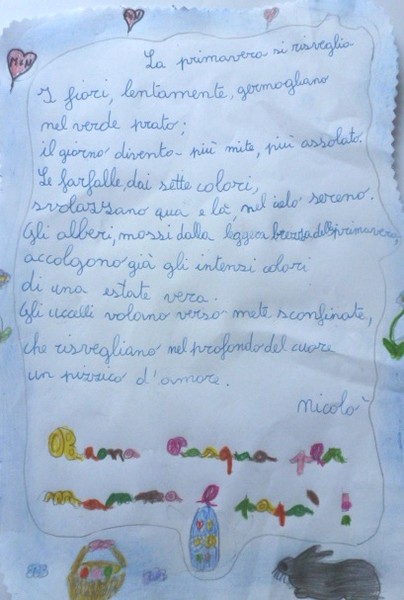 M e N
La primavera si risveglia
I fiori, lentamente, germogliano
nel verde prato;
il giorno diventa più mite, più assolato.
Le farfalle, dai sette colori,
svolazzano qua e là, nel cielo sereno.
Gli alberi, mossi dalla leggera brezza della primavera,
accolgono già gli intensi colori
di una estate vera.
Gli uccelli volano verso mete sconfinate,
che risvegliano nel profondo del cuore
un pizzico d'amore.
Nicolò
Buona Pasqua